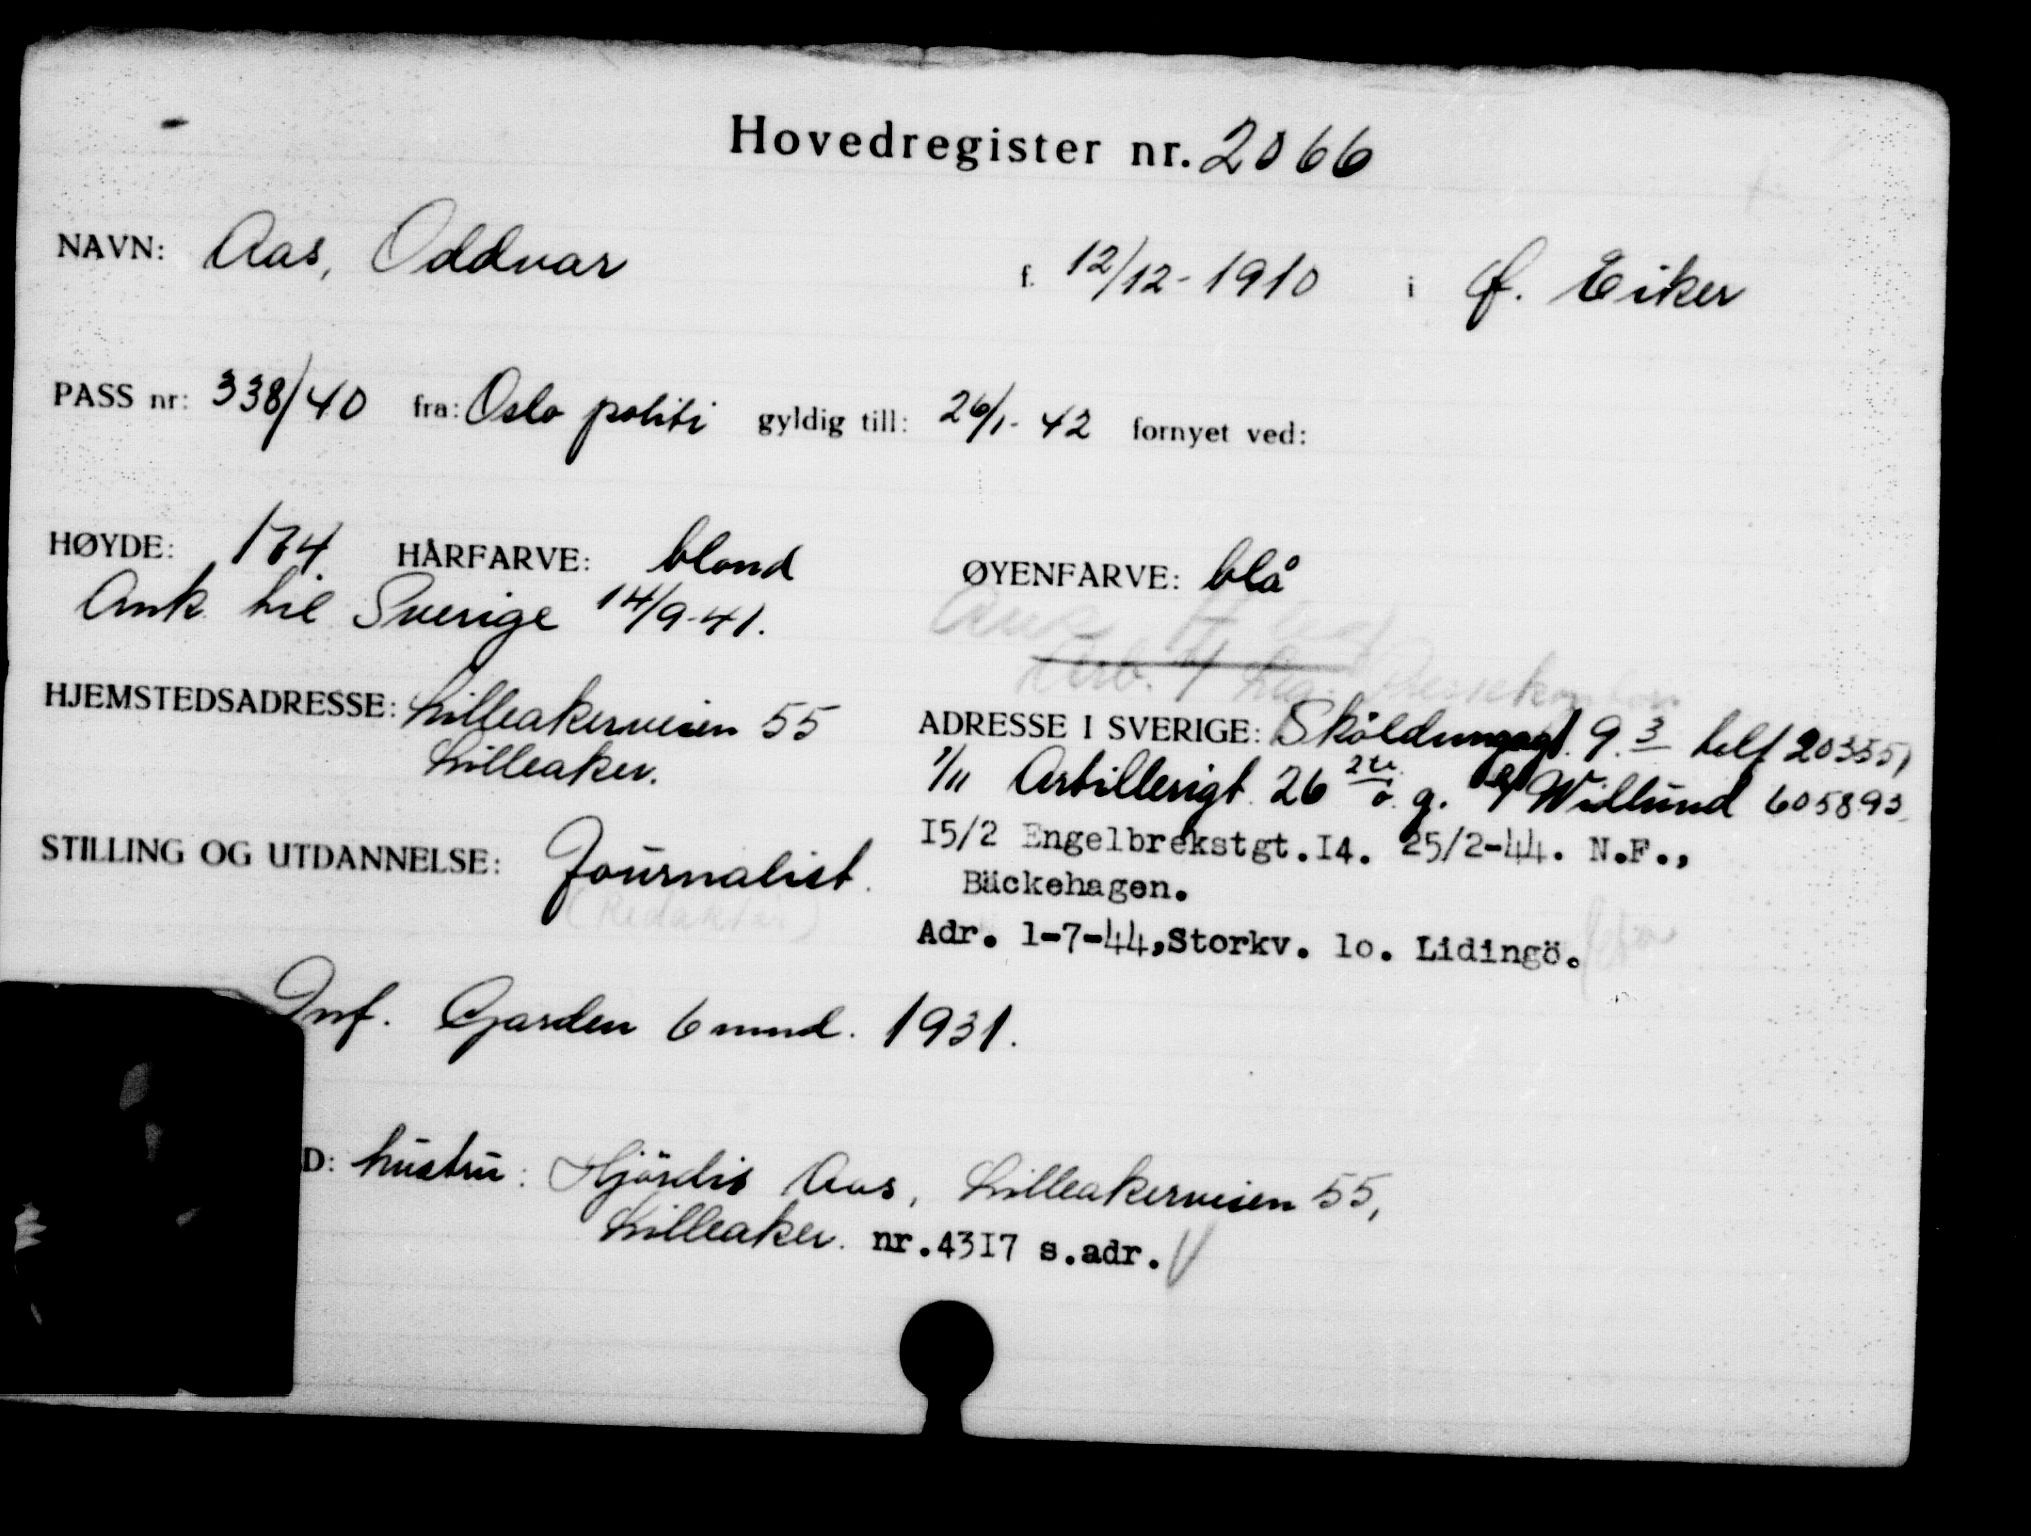 Hovedregister nr. 2066
NAVN: Aas, Oddvar f. 12/12-1910 i Ø. Eiker
PASS nr: 338/40 fra: Oslo politi gyldig till: 26/1-42 fornyet ved:
HØYDE: 174 HÅRFARVE: blond ØYENFARVE: blå
Ank. til Sverige 14/9-41.
Arb.
HJEMSTEDSADRESSE: Lilleakerveien 55
Lilleaker.
ADRESSE I SVERIGE: Sköldungagt. 9.3 telf 203551
1/11 Artillerigt. 26 2tr. ö. g. c/o Widlund 605893
STILLING OG UTDANNELSE: Journalist.
(Redaktør)
I5/2 Engelbrekstgt.I4. 25/2-44. N.F.,
Bäckehagen.
Adr. 1-7-44,Storkv. 1o. Lidingö.
Inf. Garden 6 mnd. 1931.
D: hustru: Hjördis Aas, Lilleakerveien 55,
Lilleaker. nr.43I7 s.adr.